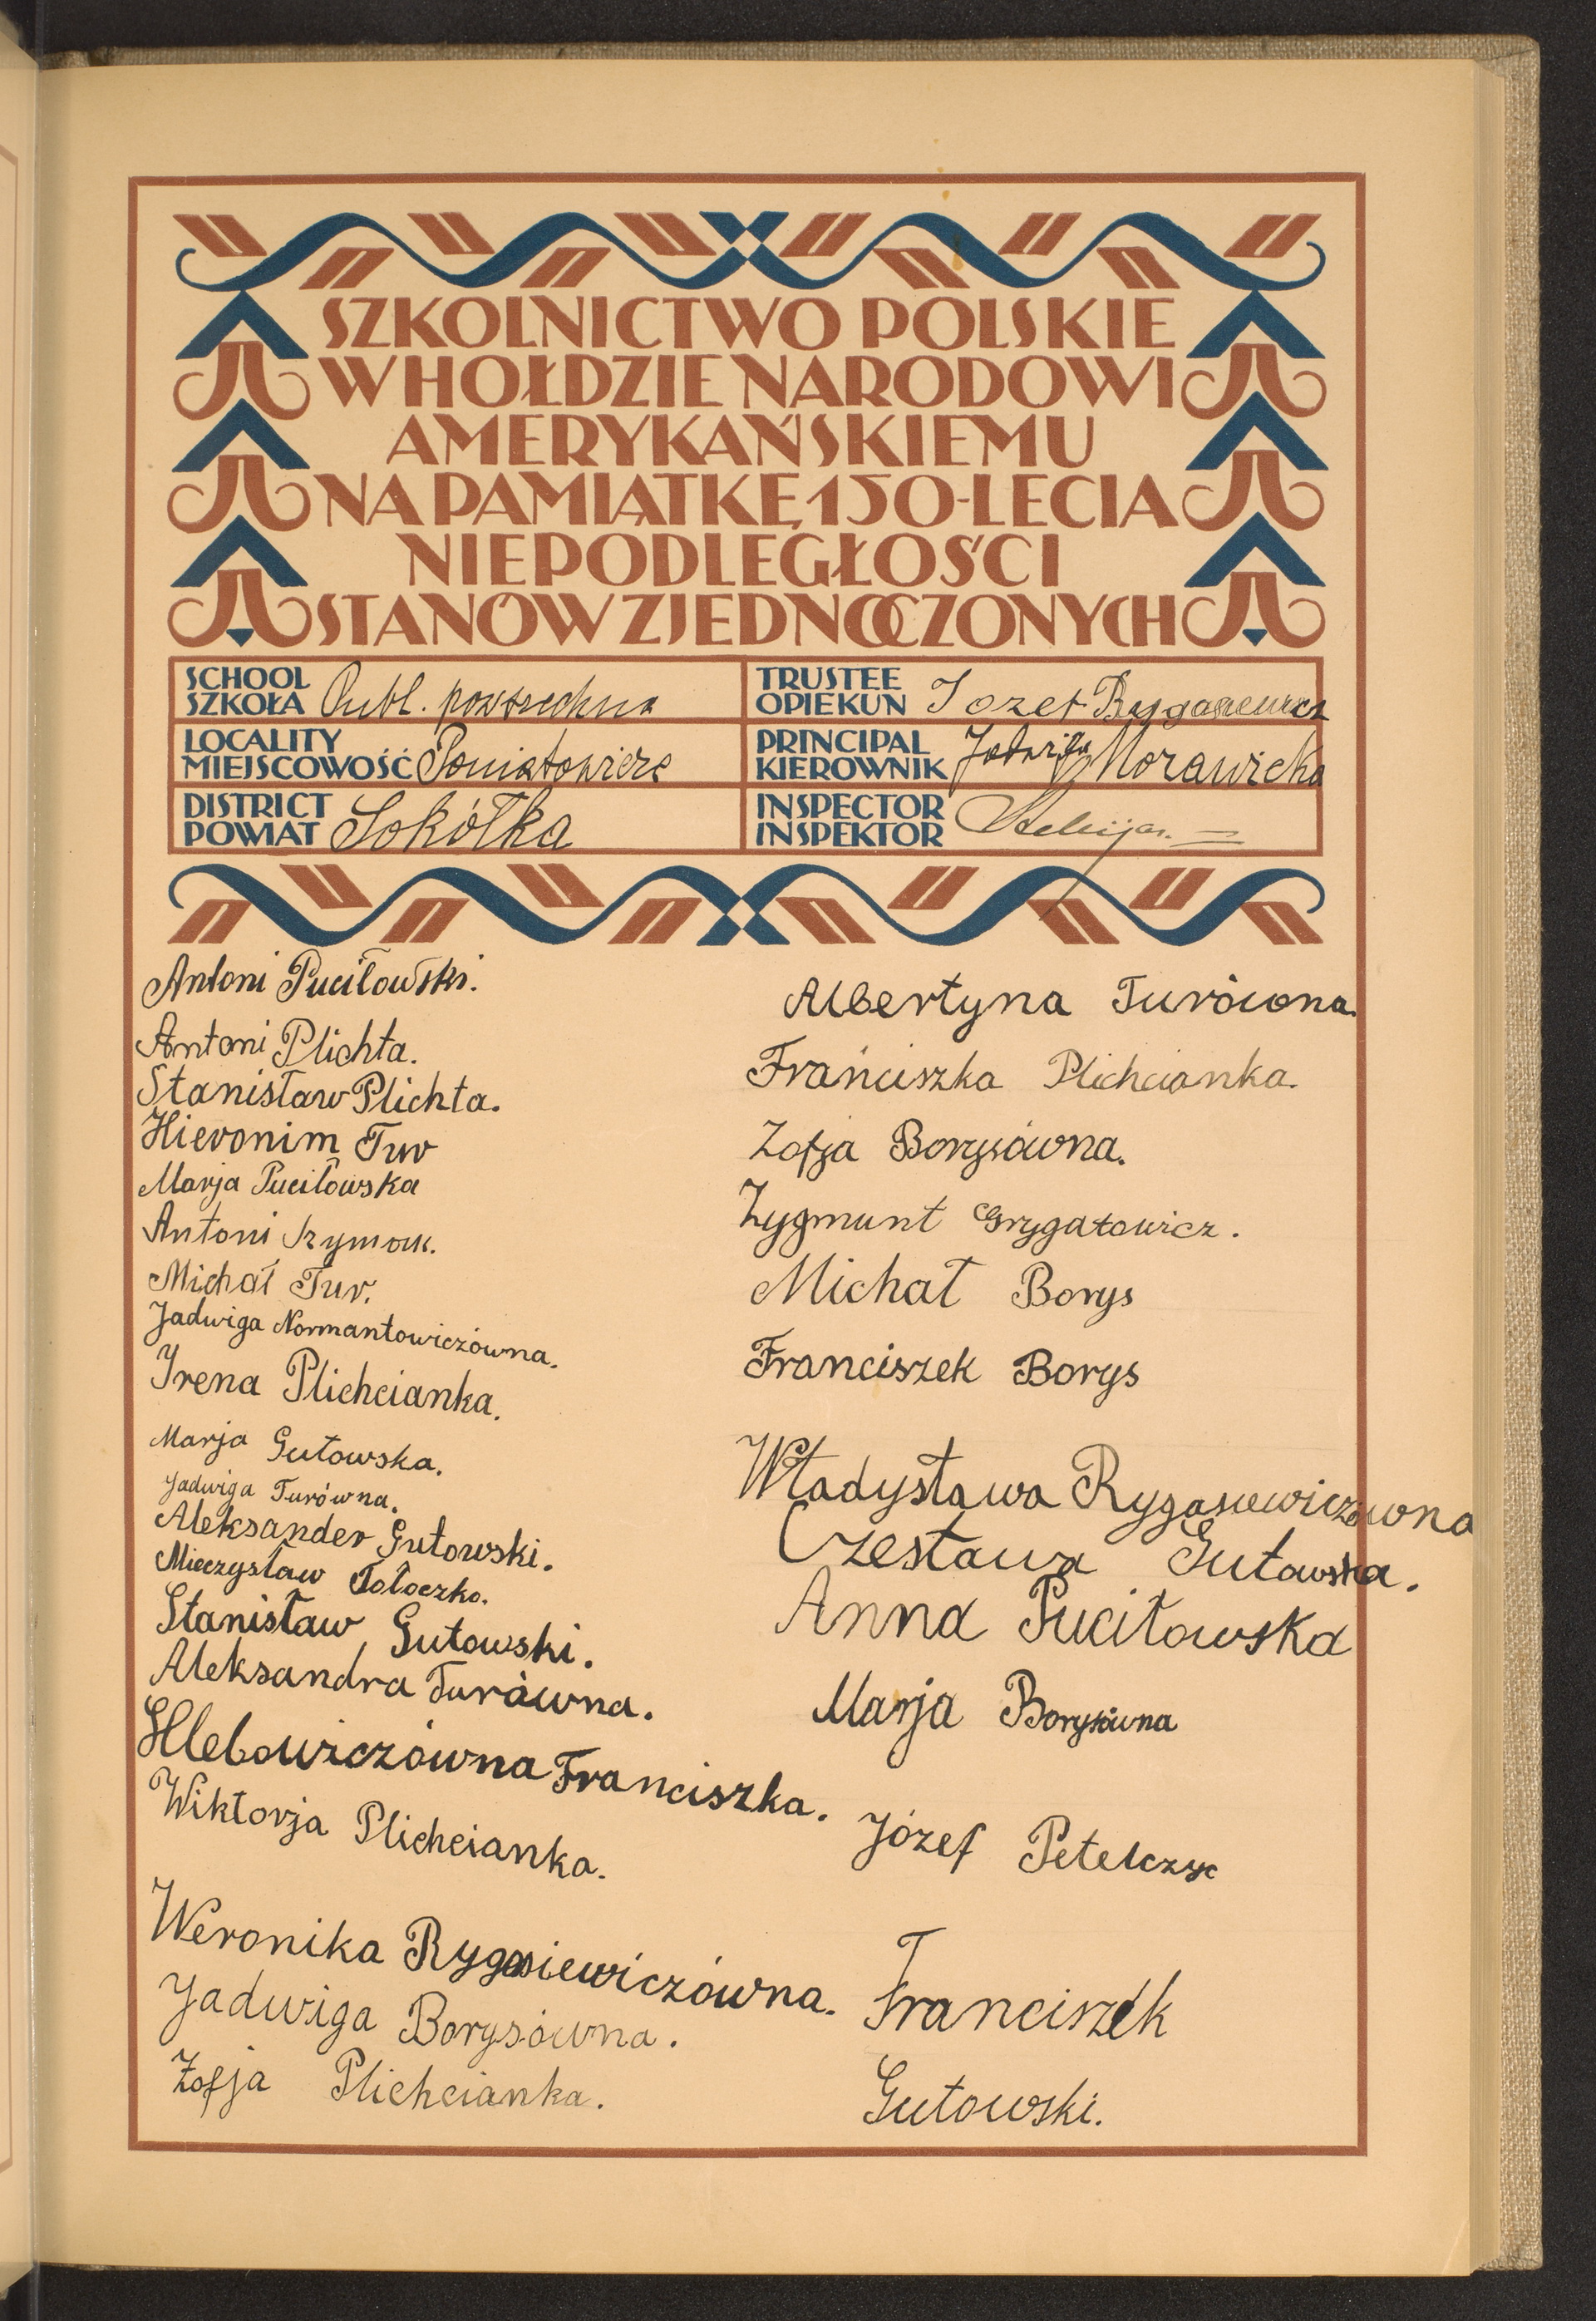 SZKOLNICTWO POLSKIE
W HOŁDZIE NARODOWI
AMERYKAŃSKIEMU
NA PAMIĄTKĘ 150-LECIA
NIEPODLEGŁOŚCI
STANÓW ZJEDNOCZONYCH
SCHOOL
SZKOŁA Publ. powszechna
LOCALITY
MIEJSCOWOŚĆ Poniatowicze
DISTRICT
POWIAT Sokółka
TRUSTEE
OPIEKUN Jozef Rygasiewicz
PRINCIPAL
KIEROWNIK Jadwiga Morawicka
INSPECTOR
INSPEKTOR
Antoni Puciłowski.
Antoni Plichta.
Stanisław Plichta.
Hieronim Tur
Marja Puciłowska
Antoni Szymak.
Michał Tur.
Jadwiga Normantowiczówna.
Irena Plichcianka.
Marja Gutowska.
Jadwiga Turówna.
Aleksander Gutowski.
Mieczysław Tołoczko.
Stanisław Gutowski.
Aleksandra Turówna.
Hlebowiczówna Franciszka.
Wiktorja Plichcianka.
Weronika Rygasiewiczówna.
Jadwiga Borysówna.
Zofja Plichcianka.
Albertyna Turówna.
Franciszka Plichcianka.
Zofja Borysówna.
Zygmunt Grygatowicz.
Michał Borys
Franciszek Borys
Władysława Rygasiewiczówna
Czesława Gutowska.
Anna Puciłowska
Marja Borysówna
Józef Petelczyc
Franciszek
Gutowski.